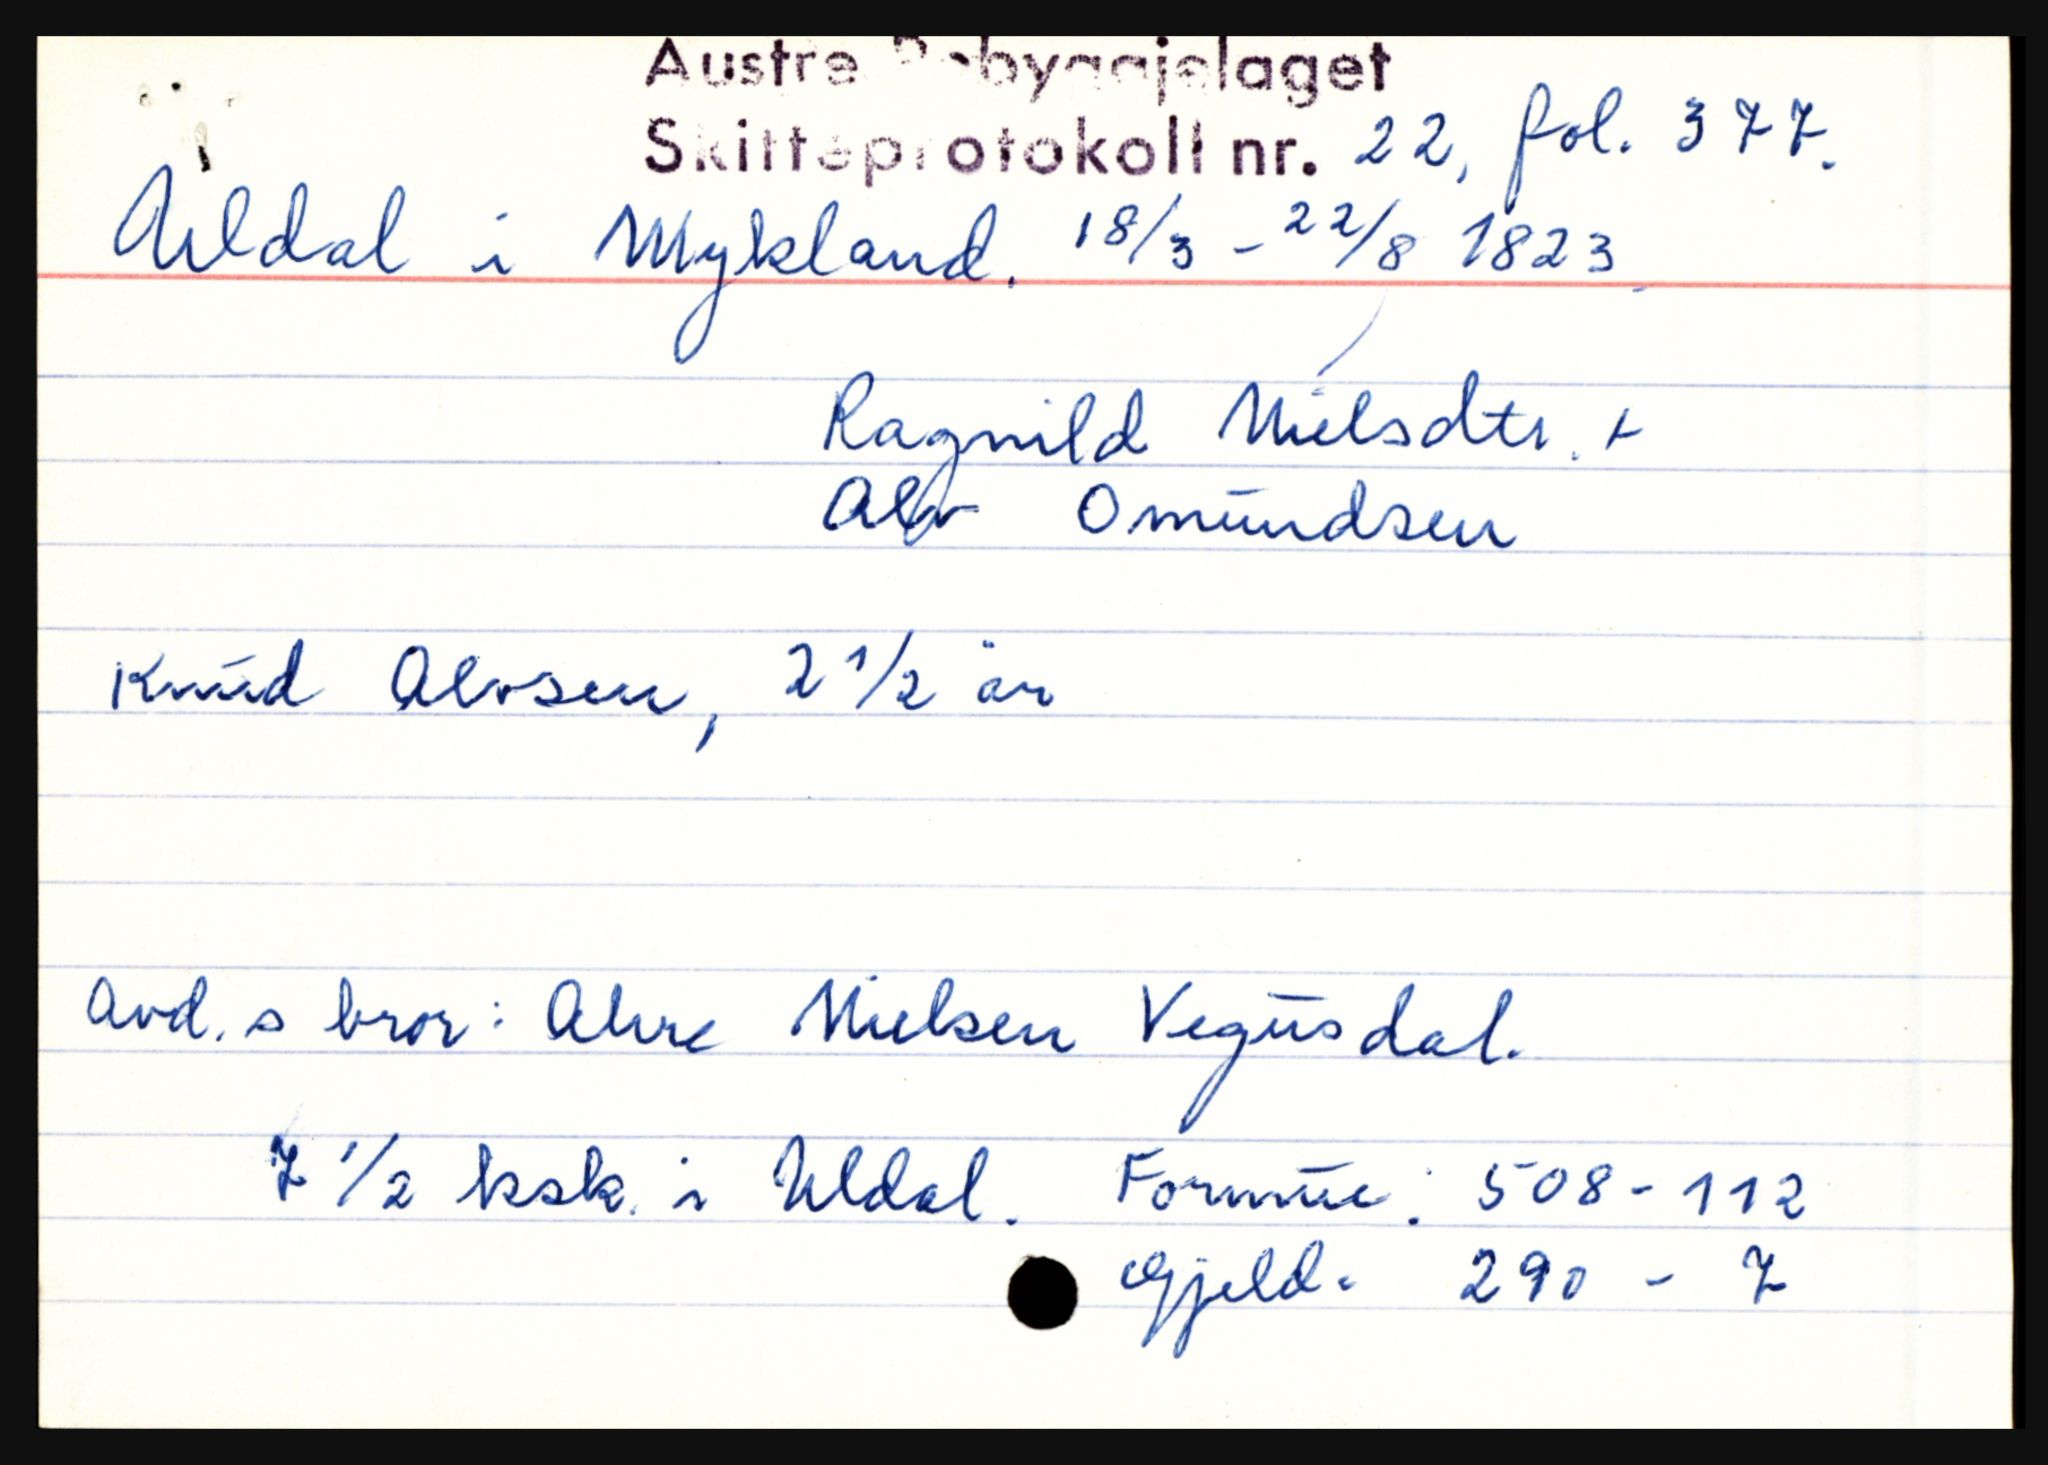 Austre Robyggjelaget
Skifteprotokoll nr. 22, fol. 377.
Uldal i Mykland. 18/3 - 22/8 1823
Ragnild Nielsdtr. +
Alv Omundsen
Knud Alvsen, 2 1/2 år
Avd. s bror: Alvre Nielsen Vegusdal.
7 1/2 ksk. i Uldal. Formue: 508 - 112
Gjeld. 290 - 7